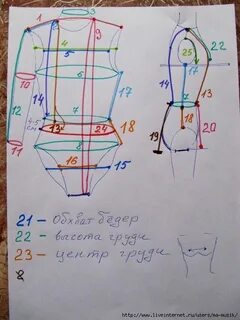 3
1
2
9
4
6
5
25
22
10
14
7
17
12
4-5 см
13
24
8
18
11
16
15
19
20
21 – Обхват бёдер
22 – высота груди
23 – центр груди
8
http://www.liveinternet.ru/users/na-musik/